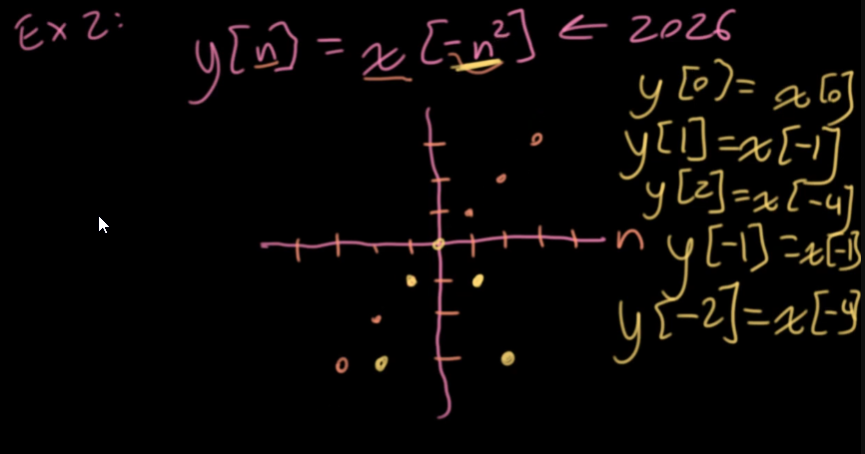 Ex 2:
y[n] = x[-n²] ← 2026
y[0] = x[0]
y[1] = x[-1]
y[2] = x[-4]
n
y[-1] = x[-1]
y[-2] = x[-4]